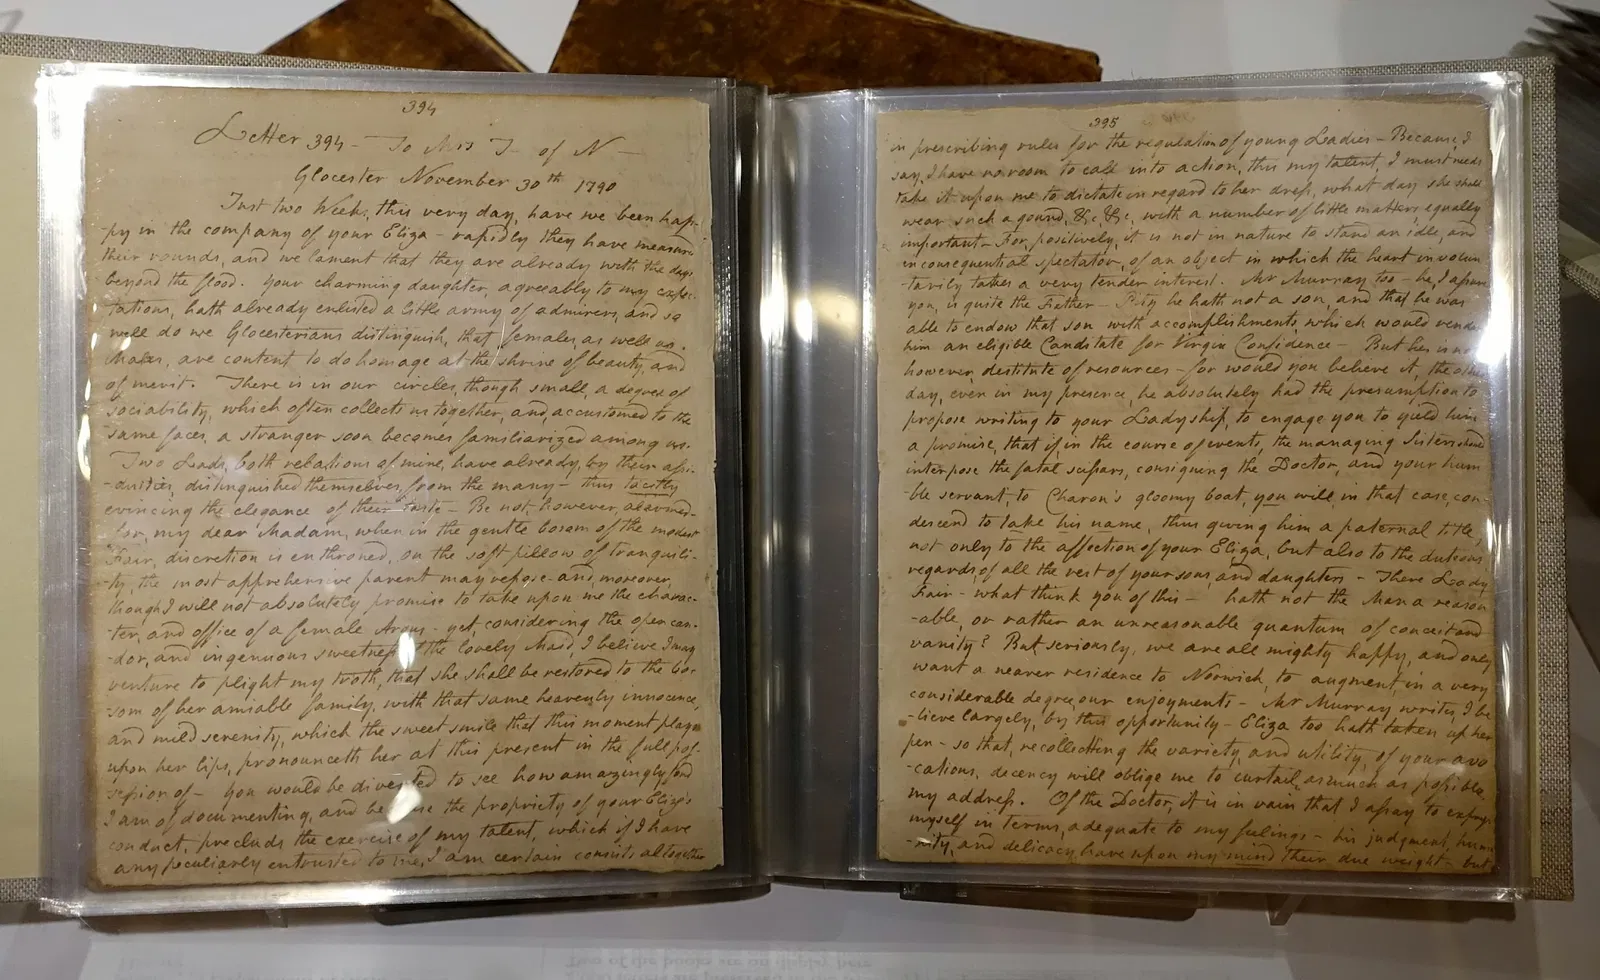 394
Letter 394 - To Mrs T- of N-
Glocester November 30th 1790
Just two Weeks, this very day, have we been hap-
py in the company of your Eliza - rapidly they have measur
their rounds, and we lament that they are already with the days
beyond the flood. Your charming daughter, agreeably to my expec-
tations, hath already enlisted a little army of admirers, and so
well do we Glocesterians distinguish, that females, as well as
Males, are content to do homage at the shrine of beauty, and
of merit. There is in our circles, though small, a degree of
sociability, which often collects us together, and, accustomed to the
same faces, a stranger soon becomes familiarized among us.
Two Lads, both relations of mine, have already, by their assi-
-duities, distinguished themselves, from the many - thus tacitly
evincing the elegance of their taste - Be not, however, alarmed
for, my dear Madam, when in the gentle bosom of the modest
Fair, discretion is enthroned, on the soft pillow of tranquili-
-ty, the most apprehensive parent may repose - and, moreover,
though I will not absolutely promise to take upon me the charac-
-ter, and office of a female Argus - yet, considering the open can-
-dor, and ingenuous sweetness of the lovely Maid, I believe I may
venture to plight my troth, that she shall be restored to the bo-
som of her amiable family, with that same heavenly innocence,
and mild serenity, which the sweet smile that this moment plays
upon her lips, pronounceth her at this present in the full pos-
session of - You would be diverted to see how amazingly fond
I am of documenting, and because the propriety of your Eliza's
conduct, precludes the exercise of my talent, which if I have
any peculiarly entrusted to me, I am certain consists altogether
395
in prescribing rules for the regulation of young Ladies - Because, I
say, I have no room to call into action, this my talent, I must needs
take it upon me to dictate in regard to her dress, what day she shall
wear such a gound, &c. &c., with a number of little matters equally
important - For, positively, it is not in nature to stand an idle, and
inconsequential spectator, of an object in which the heart involun
tarily takes a very tender interest. Mr Murray too - he, I assure
you, is quite the Father - Pity he hath not a son, and that he was
able to endow that son with accomplishments, which would rende
him an eligible Candidate for Virgin Confidence - But he is not
however, destitute of resources - for would you believe it, the other
day, even in my presence, he absolutely had the presumption to
propose writing to your Ladyship, to engage you to yield him
a promise, that if, in the course of events, the managing Sisters should
interpose the fatal scissars, consigning the Doctor, and your hum
-ble servant, to Charon's gloomy boat, you will, in that case, con-
descend to take his name, thus giving him a paternal title,
not only to the affection of your Eliza, but also to the duteous
regards, of all the rest of your sons, and daughters - There Lady
Fair - what think you of this - hath not the Man a reason
-able, or rather an unreasonable quantum of conceit and
vanity? But seriously, we are all mighty happy, and only
want a nearer residence to Norwich, to augment, in a very
considerable degree, our enjoyments - Mr Murray writes, I be
-lieve largely, by this opportunity - Eliza too hath taken up her
pen - so that, recollecting the variety, and utility, of your avo
-cations, decency will oblige me to curtail, as much as possible,
my address. Of the Doctor, it is in vain that I assay to express
myself in terms, adequate to my feelings - his judgment, huma
-nity, and delicacy, have upon my mind their due weight - but